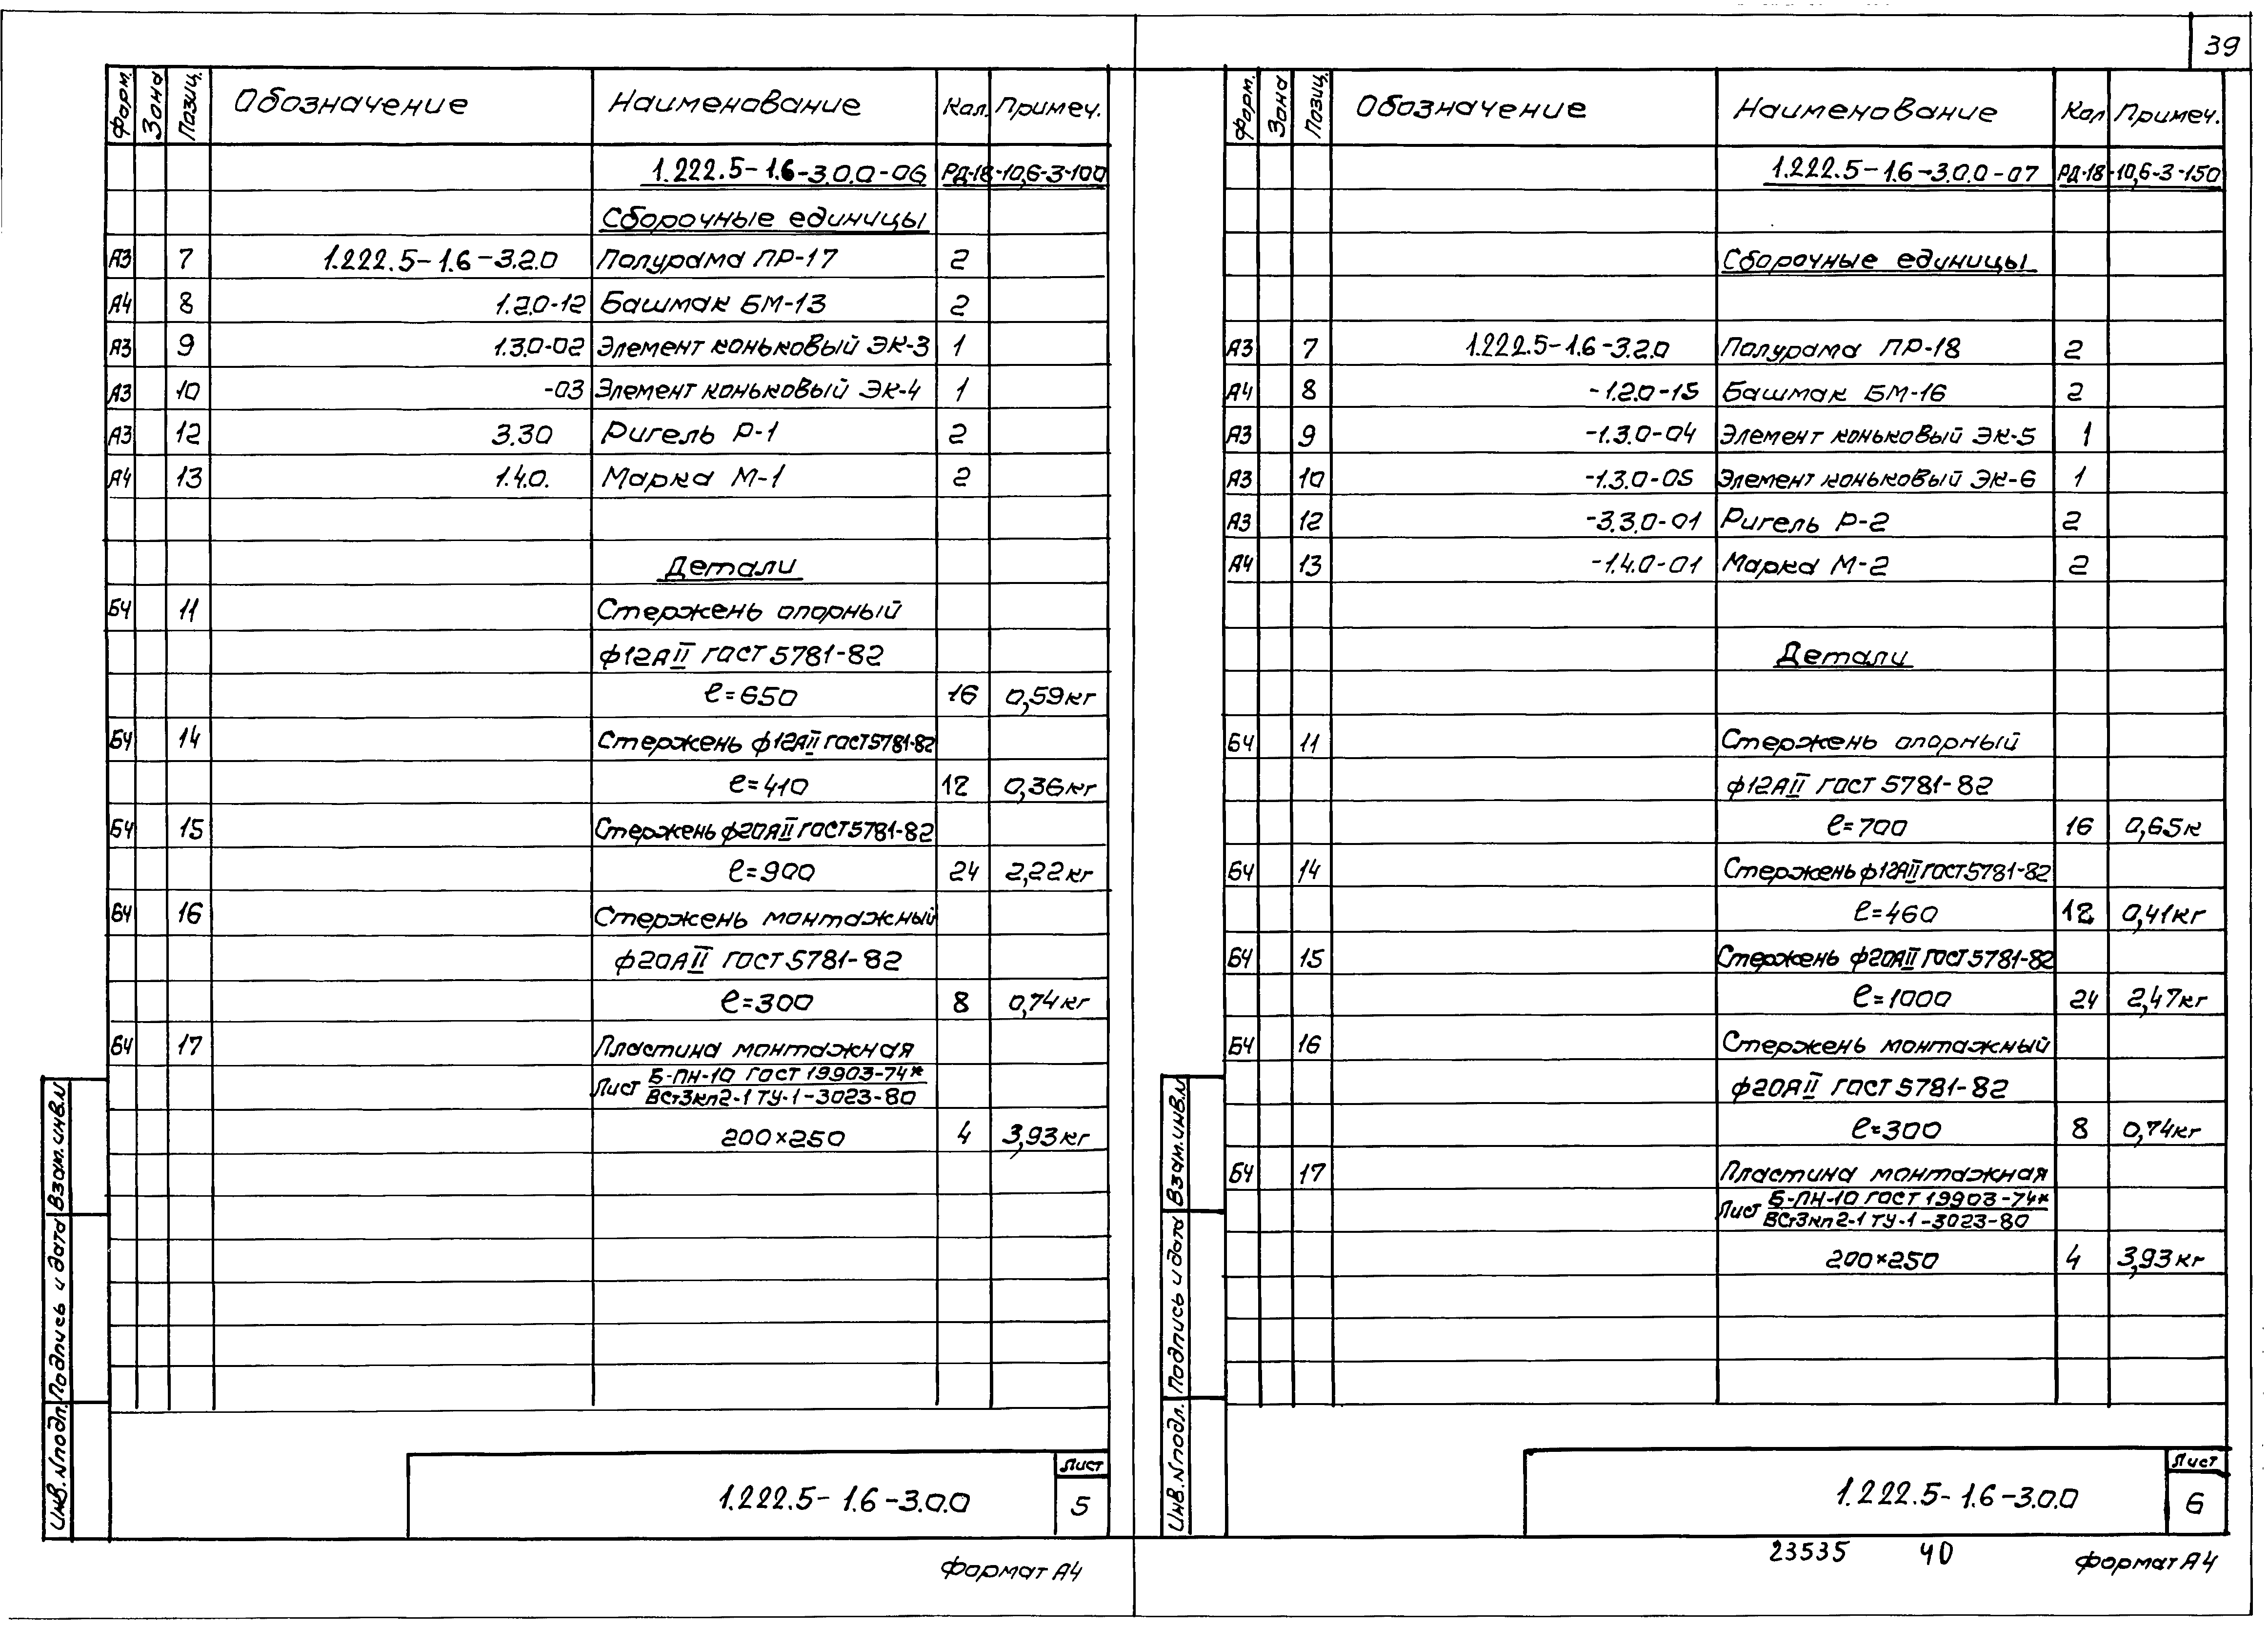 39
Форм. Зона Позиц. Обозначение Наименование Кол. Примеч.
1.222.5-1.6-3.0.0-06 РД-18-10,6-3-100
Сборочные единицы
А3 7 1.222.5-1.6-3.2.0 Полурама ПР-17 2
А4 8 1.2.0-12 Башмак БМ-13 2
А3 9 1.3.0-02 Элемент коньковый ЭК-3 1
А3 10 -03 Элемент коньковый ЭК-4 1
А3 12 3.30 Ригель Р-1 2
А4 13 1.4.0. Марка М-1 2
Детали
БЧ 11 Стержень опорный
ф12АII ГОСТ 5781-82
ℓ=650 16 0,59кг
БЧ 14 Стержень ф12АII ГОСТ5781-82
ℓ=410 12 0,36кг
БЧ 15 Стержень ф20АII ГОСТ5781-82
ℓ=900 24 2,22кг
БЧ 16 Стержень монтажный
ф20АII ГОСТ 5781-82
ℓ=300 8 0,74кг
БЧ 17 Пластина монтажная
Лист Б-ПН-10 ГОСТ 19903-74*
ВСт3кп2-1 ТУ-1-3023-80
200×250 4 3,93кг
Взам.инв.N
Подпись и дата
Инв.Nподл.
1.222.5-1.6-3.0.0
Лист
5
Формат А4
Форм. Зона Позиц. Обозначение Наименование Кол Примеч.
1.222.5-1.6-3.0.0-07 РД-18-10,6-3-150
Сборочные единицы
А3 7 1.222.5-1.6-3.2.0 Полурама ПР-18 2
А4 8 -1.2.0-15 Башмак БМ-16 2
А3 9 -1.3.0-04 Элемент коньковый ЭК-5 1
А3 10 -1.3.0-05 Элемент коньковый ЭК-6 1
А3 12 -3.3.0-01 Ригель Р-2 2
А4 13 -1.4.0-01 Марка М-2 2
Детали
БЧ 11 Стержень опорный
ф12АII ГОСТ 5781-82
ℓ=700 16 0,65к
БЧ 14 Стержень ф12АII ГОСТ5781-82
ℓ=460 12 0,41кг
БЧ 15 Стержень ф20АII ГОСТ5781-82
ℓ=1000 24 2,47кг
БЧ 16 Стержень монтажный
ф20АII ГОСТ 5781-82
ℓ=300 8 0,74кг
БЧ 17 Пластина монтажная
Лист Б-ПН-10 ГОСТ 19903-74*
ВСт3кп2-1 ТУ-1-3023-80
200×250 4 3,93кг
Взам.инв.N
Подпись и дата
Инв.Nподл.
1.222.5-1.6-3.0.0
Лист
6
23535 40
Формат А4